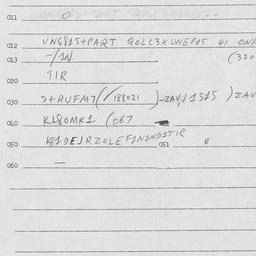 011 0
012 UNG815+PART QOLC3XUNEP15 Q1 ONA
013 -/1N (320
020 TIR
030 S+RUFM7(/188021)-ZAVJ1515 )ZAV
040 KL80MK1 (067
050 1DEJRZOLEF1N1ND1TIR 051 0
060 —